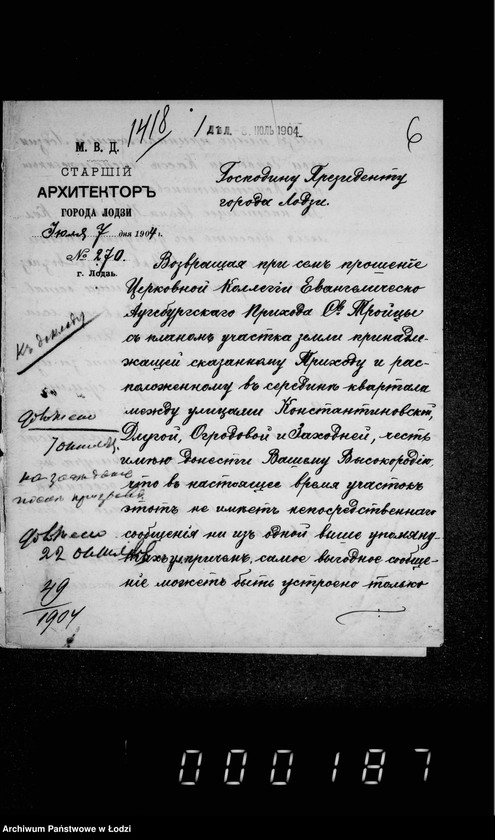 1418
1 ДѢЛ. 8. ІЮЛЬ 1904
6
М. В. Д.
СТАРШІЙ
АРХИТЕКТОРЪ
ГОРОДА ЛОДЗИ
Іюля 7 дня 1904 г.
№ 270.
г. Лодзь.
Господину Президенту
города Лодзи.
Возвращая при семъ прошеніе
Церковной Коллегіи Евангелическо
Аугсбургскаго Прихода Св. Тройцы
съ планомъ участка земли принадле-
жащей сказанному Приходу и рас-
положенному въ серединѣ квартала
между улицами Константиновской,
Длугой, Огродовой и Заходней, честь
имѣю донести Вашему Высокородію,
что въ настоящее время участокъ
этотъ не имѣетъ непосредственнаго
сообщенія ни изъ одной выше упомяну-
тыхъ улицъ, самое выгодное сообще-
ніе можетъ быть устроено только
Къ докладу
22
49
1904
000187
Archiwum Państwowe w Łodzi